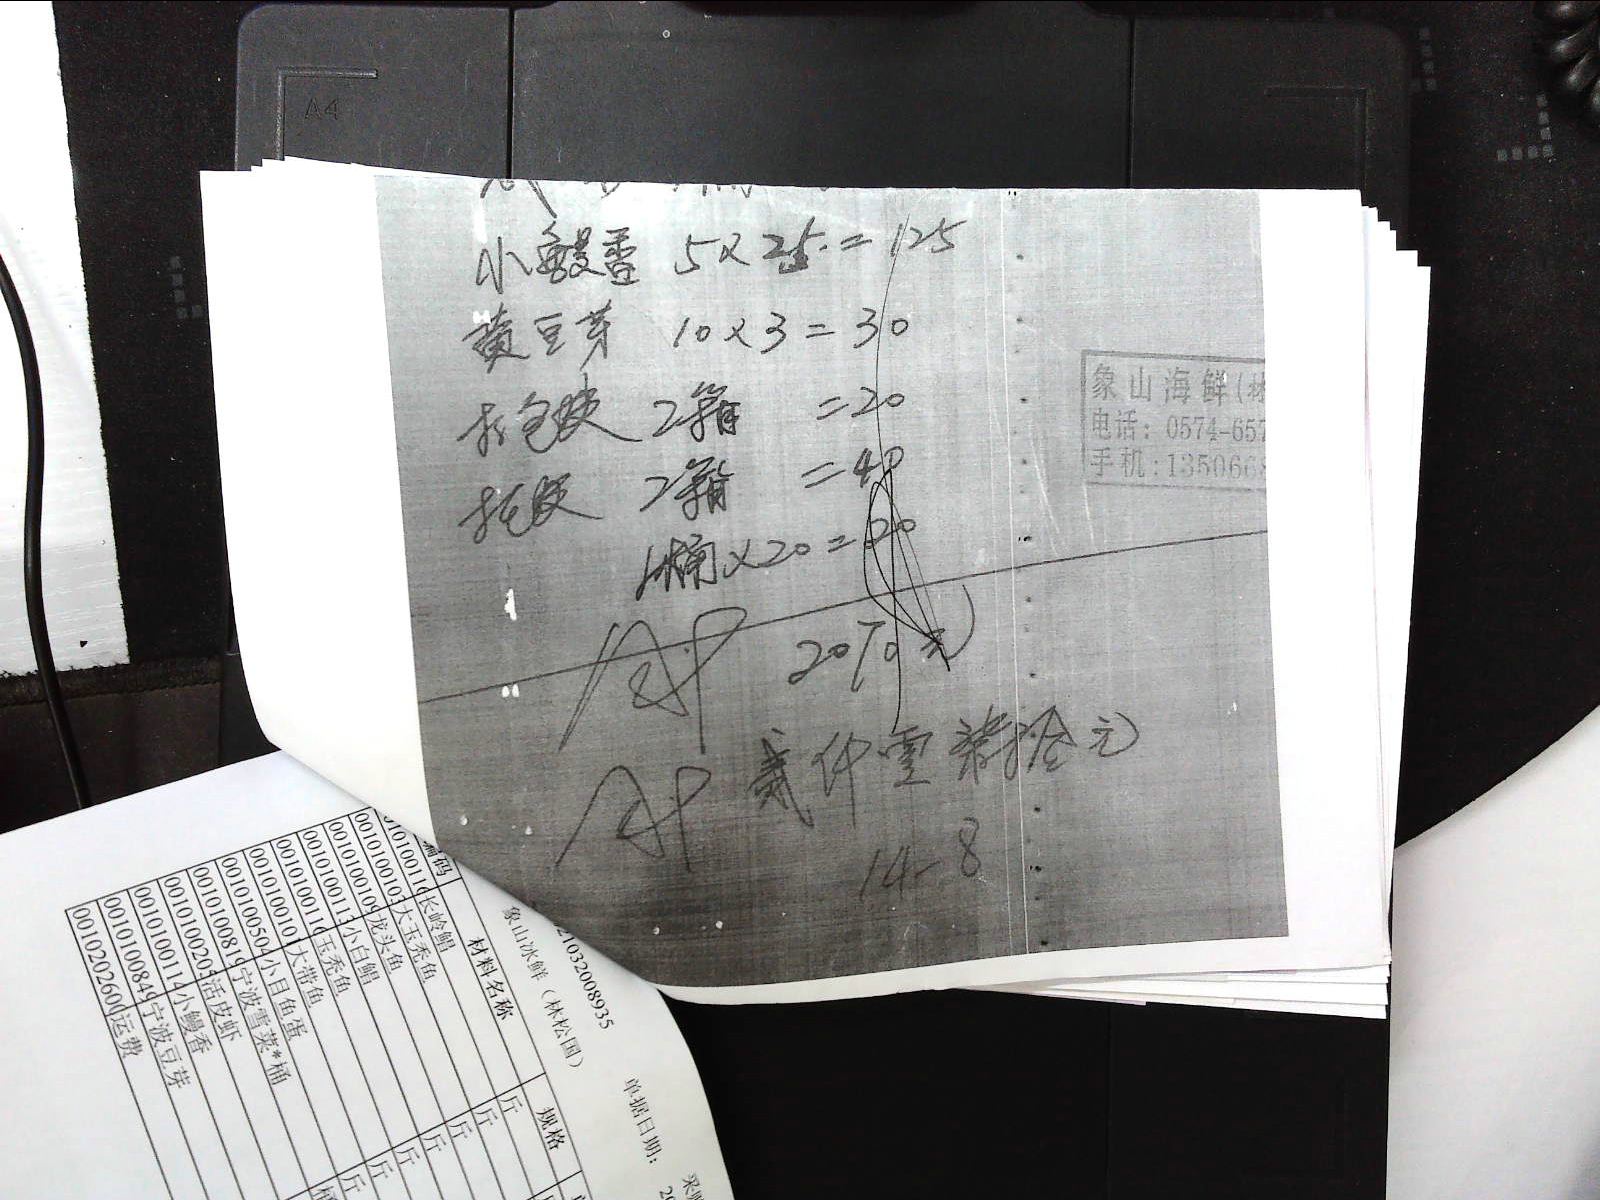 A4
小鳗香 5×25=125
黄豆芽 10×3=30
打包费 2箱 =20
托费 2箱 =40
1桶×20=20
2070元
贰仟零柒拾元
14-8
象山海鲜(林
电话: 0574-657
手机:135066
21032008935
象山冰鲜（林松国）
单据日期:
编码 材料名称 规格
长岭鲳 斤
0010100103大玉秃鱼 斤
0010100109龙头鱼 斤
0010100113小白鲳 斤
0010100116玉秃鱼 斤
0010100101大带鱼
0010100501小目鱼蛋
0010100819宁波雪菜*桶
0010100205活皮虾
0010100114小鳗香
0010100849宁波豆芽
0010202600运费